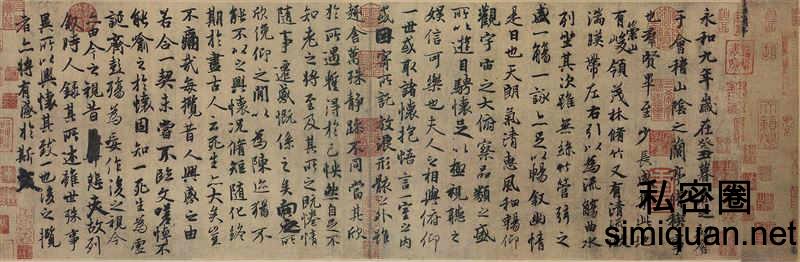 永和九年歲在癸丑暮春之初會
于會稽山陰之蘭亭脩稧事
也群賢畢至少長咸集此地
有崇山峻領茂林脩竹又有清流激
湍暎帶左右引以為流觴曲水
列坐其次雖無絲竹管弦之
盛一觴一詠亦足以暢敘幽情
是日也天朗氣清惠風和暢仰
觀宇宙之大俯察品類之盛
所以遊目騁懷足以極視聽之
娛信可樂也夫人之相與俯仰
一世或取諸懷抱悟言一室之內
或因寄所託放浪形骸之外雖
趣舍萬殊靜躁不同當其欣
於所遇蹔得於己怏然自足不
知老之將至及其所之既惓情
隨事遷感慨係之矣向之所
欣俛仰之閒以為陳迹猶不
能不以之興懷況脩短隨化終
期於盡古人云死生亦大矣豈
不痛哉每攬昔人興感之由
若合一契未嘗不臨文嗟悼不
能喻之於懷固知一死生為虛
誕齊彭殤為妄作後之視今
亦由今之視昔悲夫故列
敘時人錄其所述雖世殊事
異所以興懷其致一也後之攬
者亦將有感於斯文
私密圈
simiquan.net